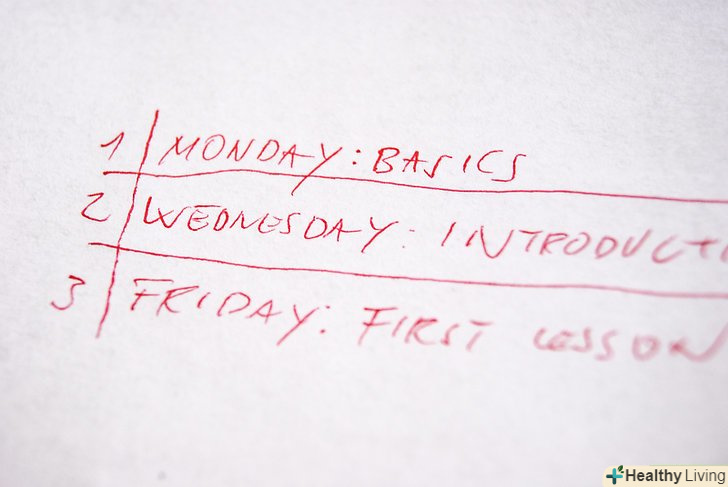 1 MONDAY: BASICS
2 WEDNESDAY: INTRODUCTI
3 FRIDAY: FIRST LESSON
Healthy Living